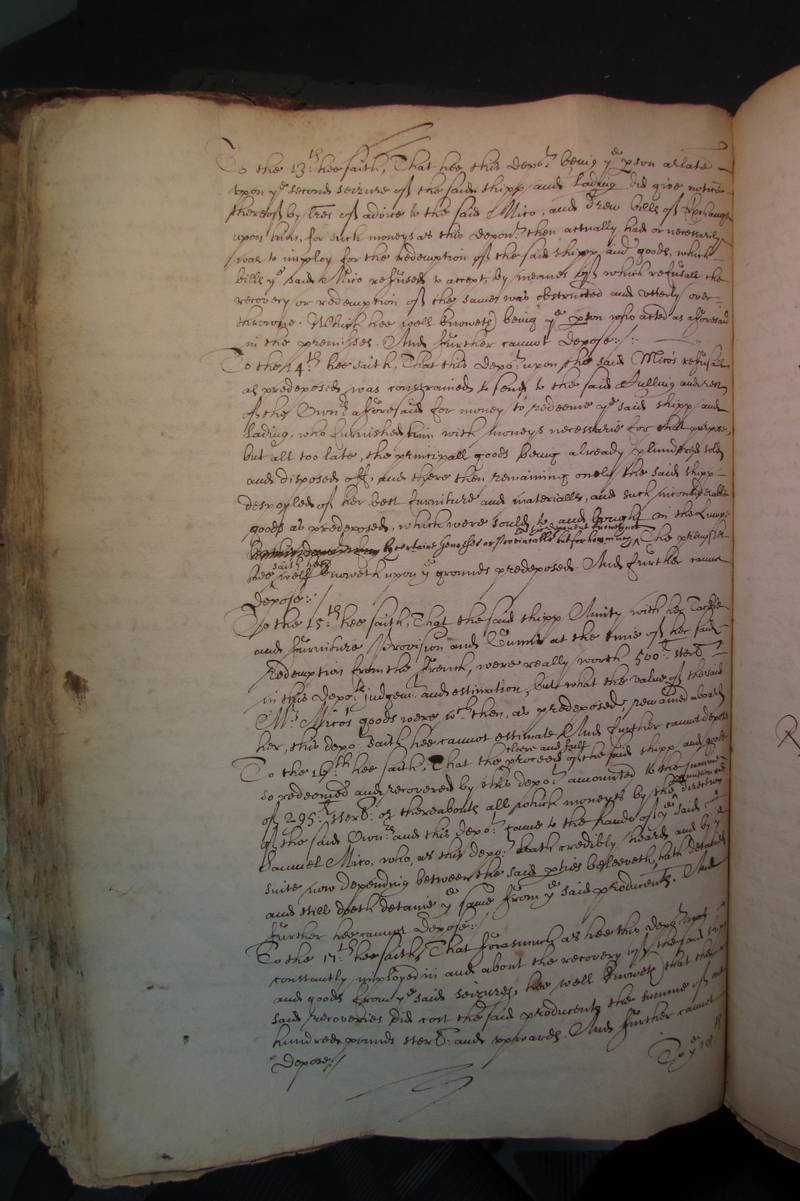 To the 13th. hee saith, That hee this depot. being ye pson as late
upon ye second seizure of the said shipp and lading did give notice
thereof by lres of advice to the said Mico, and drew bills of Exchange
upon him, for such moneys as this depont. then actually had or necessarily
was to imploy for the redemption of the said shipp and goods, which
bills ye said Mico refused to accept, by meanes of which refusall the
recovery or redemption of the same was obstructed and utterly over-
throwne. Which hee well knoweth being ye pson who acted as aforesaid
in the premisses. And further cannot depose:/:
To the 14th. hee saith, That this depot. upon the said Mico's refusall
as predeposed was constrained to send to the said and rest
of the Ownrs. aforesaid for money to redeeme ye said shipp and
lading, who furnished him with moneys necessarie for that purpose,
but all too late, the principall goods being already plundred sold
and disposed off, and there then remaining onely the said shipp
despoyled of her best furniture and materialls, and such inconsiderable
goods as predeposed, which were sould to and bought in
by certaine or Provincialls The premisses
saith hee
hee well knoweth upon ye grounds predeposed And further cannot
depose:/
To the 15th. hee saith, That the said shipp Amity with her Tackle
and furniture Provision and at the time of her said
redemption from the french, were really worth 500li. sterl
in this depots. judgemt. and estimation, but what the value of the said
Mr. Mico's goods were wch. then, as predeposed, remained aboard
her, this depot. saith hee cannot estimate And further cannot depose
there and
To the 16th. hee saith, That the proceed of the said shipp and goods
so redeemed and recovered by this depot. amounted to the summe
of 295li. sterl: or thereabouts all which moneys by the direction
of the said Ownrs. and this depot. came to the hands of ye said
Samuel Mico, who, as this depot. hath credibly heard and by ye
suite now depending between the said pties beleeveth, hath detained
and still doeth detaine ye same from ye said producents. And
further hee cannot depose:/
To the 17th. hee saith, That forasmuch as hee this depot. was
constantly imployed in and about the recovery of the said shipp
and goods from ye said seizures, hee well knoweth that the
said recoveries did cost the said producents the summe of
hundred pounds sterl: and upwards. And further cannot
depose:/
To ye 18